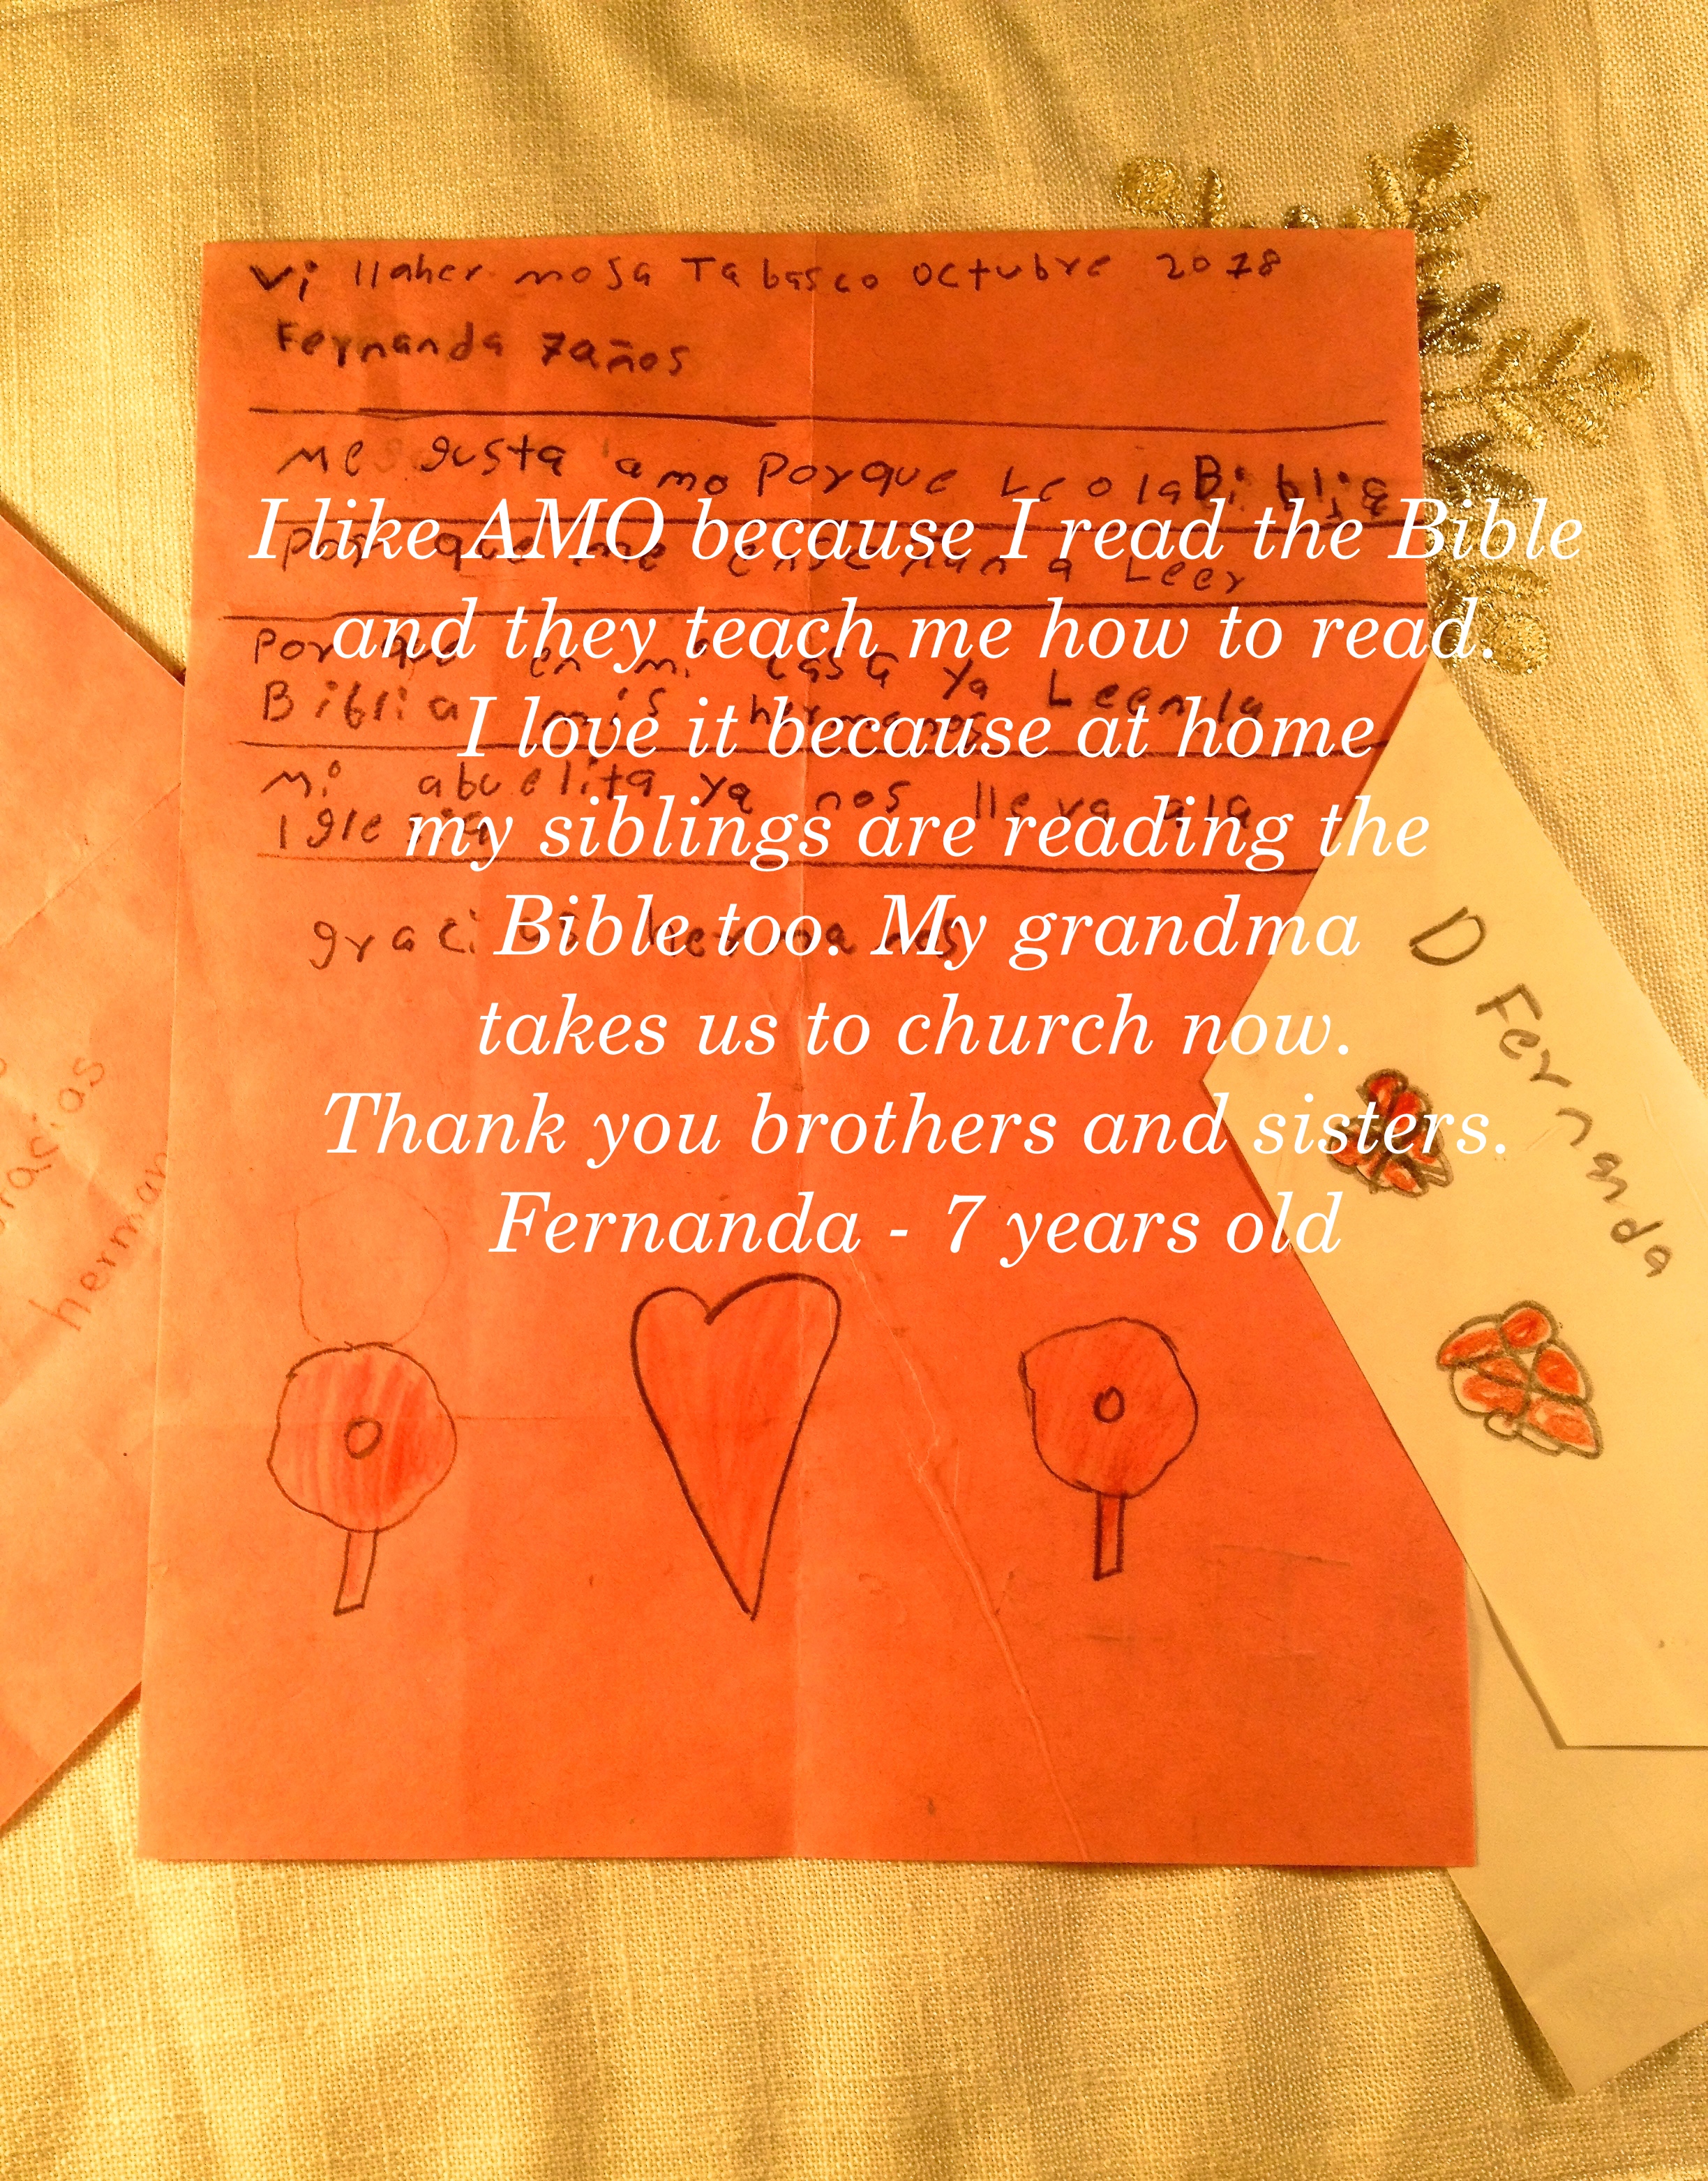 vi llaher mosa Tabasco octubre 2018
Fernanda 7años
me gusta amo porque Leo la Biblia
I like AMO because I read the Bible
por que me enseñan a Leer
and they teach me how to read.
por que en mi casa ya Leen la
Biblia mis hermanos
I love it because at home
mi abuelita ya nos lleva a la
Iglesia
my siblings are reading the
gracias hermanos
Bible too. My grandma
takes us to church now.
Thank you brothers and sisters.
Fernanda - 7 years old
D Fernanda
gracias
herman